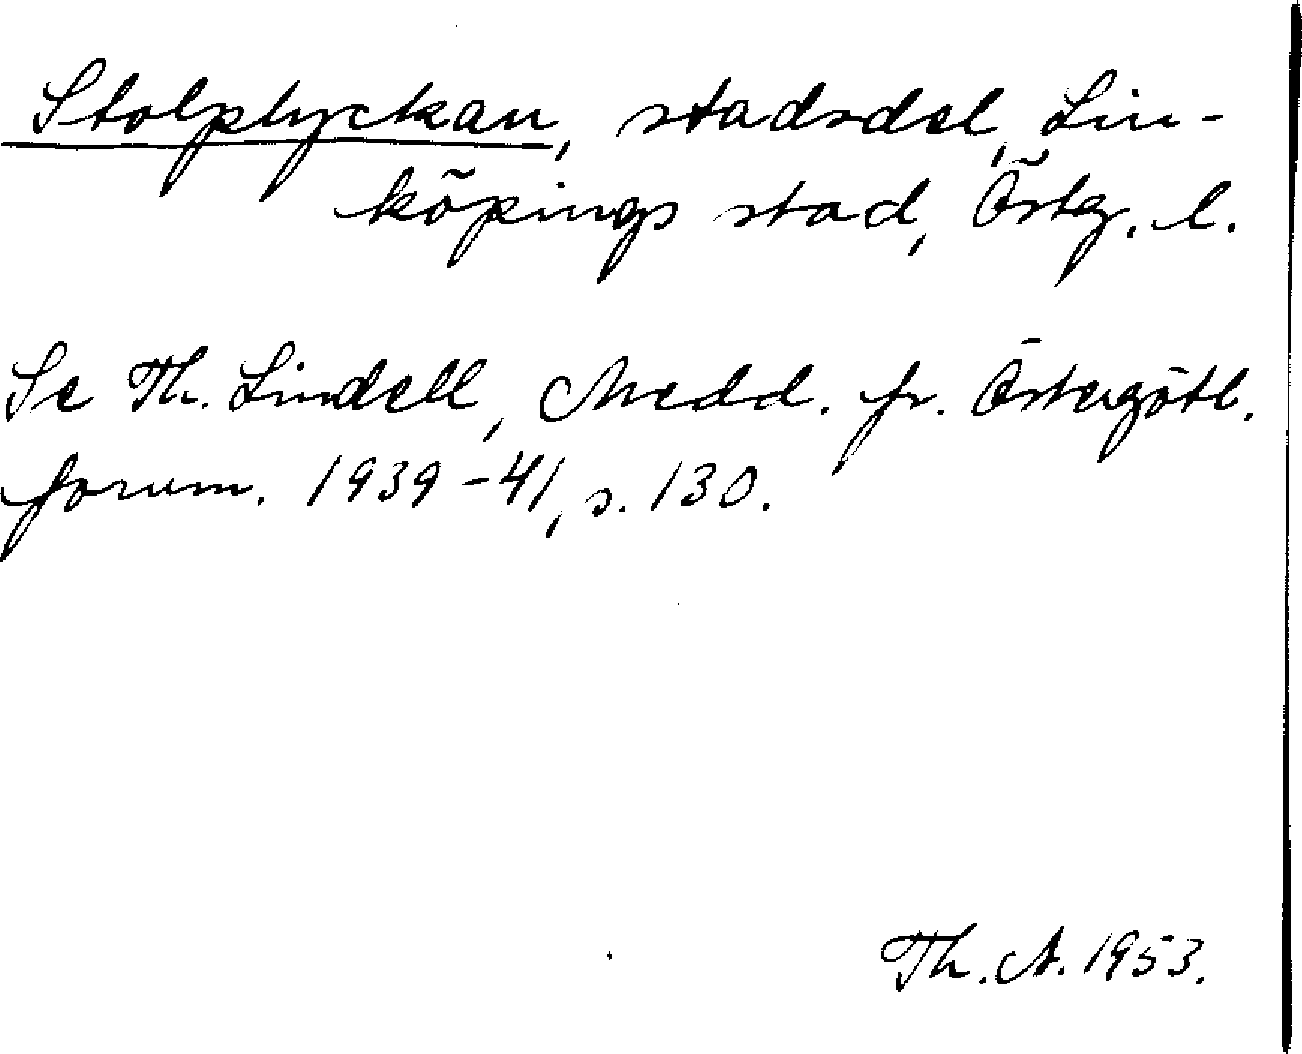 Stolplyckan, stadsdel, Lin-
köpings stad, Östg. l.
Se Th. Lindell, Medd. fr. Östergötl.
fornm. 1939-41, s. 130.
Th. A. 1953.